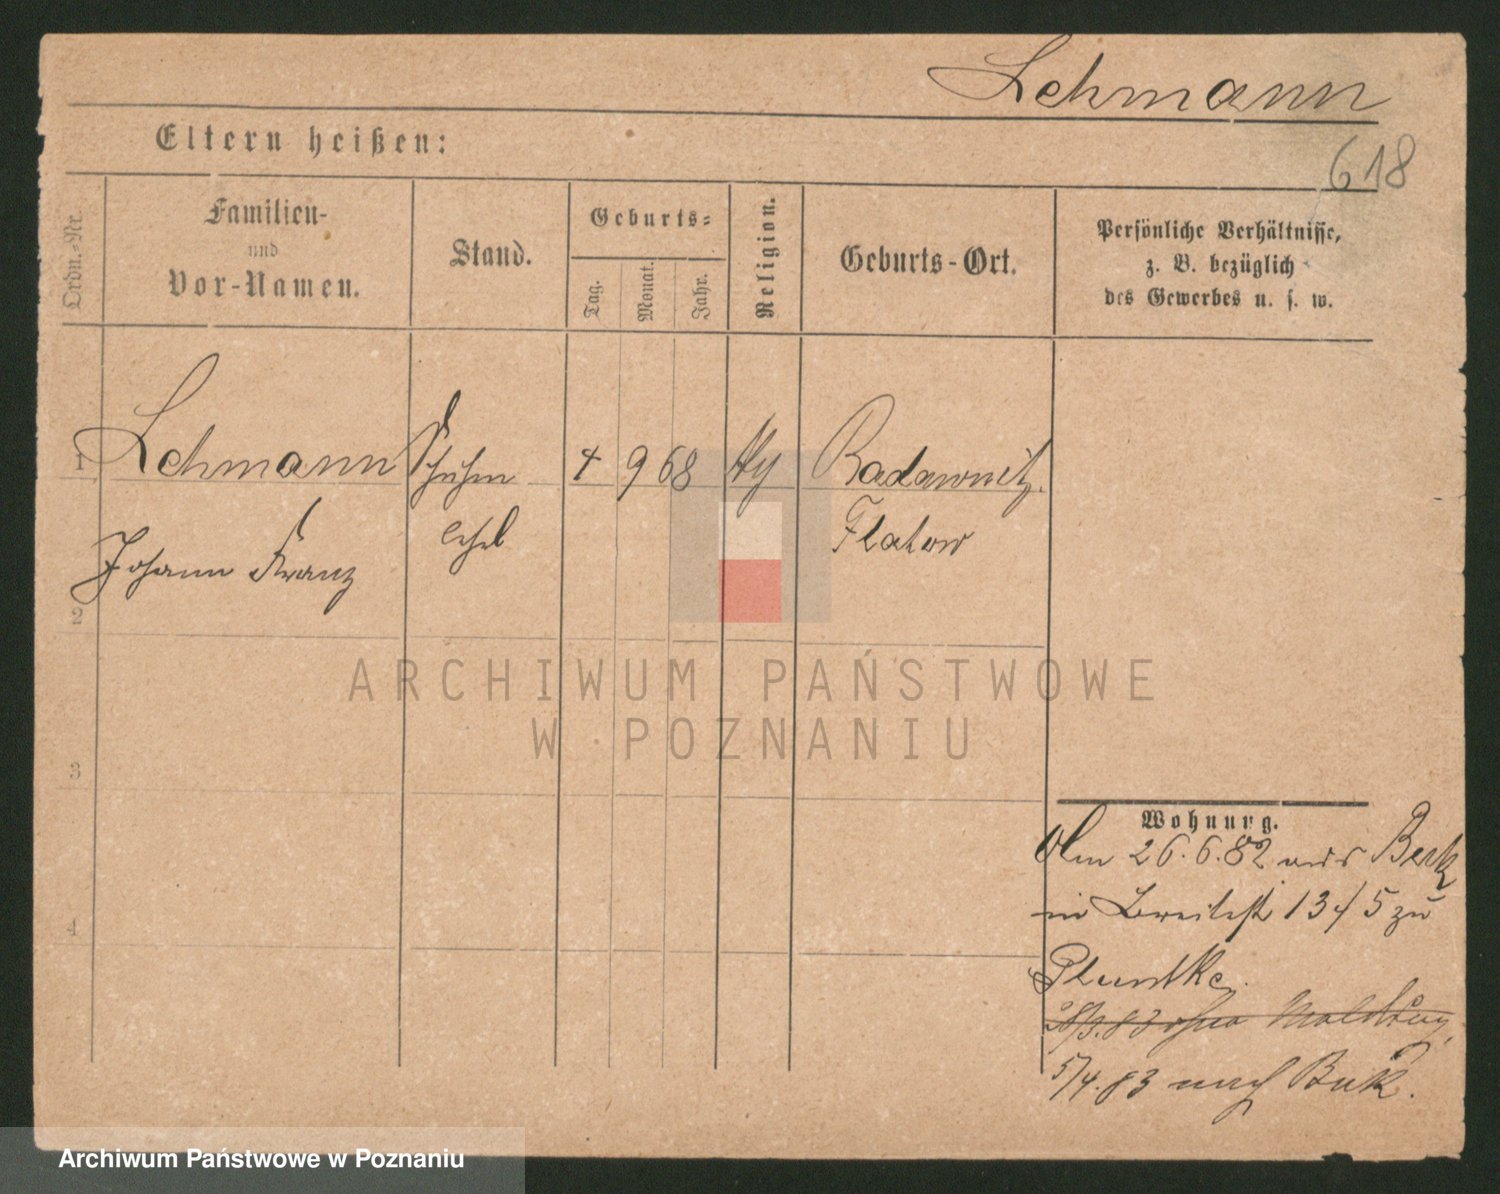 Lehmann
618
Eltern heißen:
Ordn.-Nr.
Familien-
und
Vor-Namen.
Stand.
Geburts-
Tag.
Monat.
Jahr.
Religion.
Geburts-Ort.
Persönliche Verhältnisse,
z. B. bezüglich
des Gewerbes u. s. w.
1 Lehmann Schuhm 4 9 68 Radawnitz
lehrl Flatow
Johann Franz
2
ARCHIWUM PAŃSTWOWE
W POZNANIU
3
Wohnung.
26.6.82 aus
in Breitestr 13/5 zu
4
28/3.83 ohne Meldung
5/4.83 nach Buk.
Archiwum Państwowe w Poznaniu